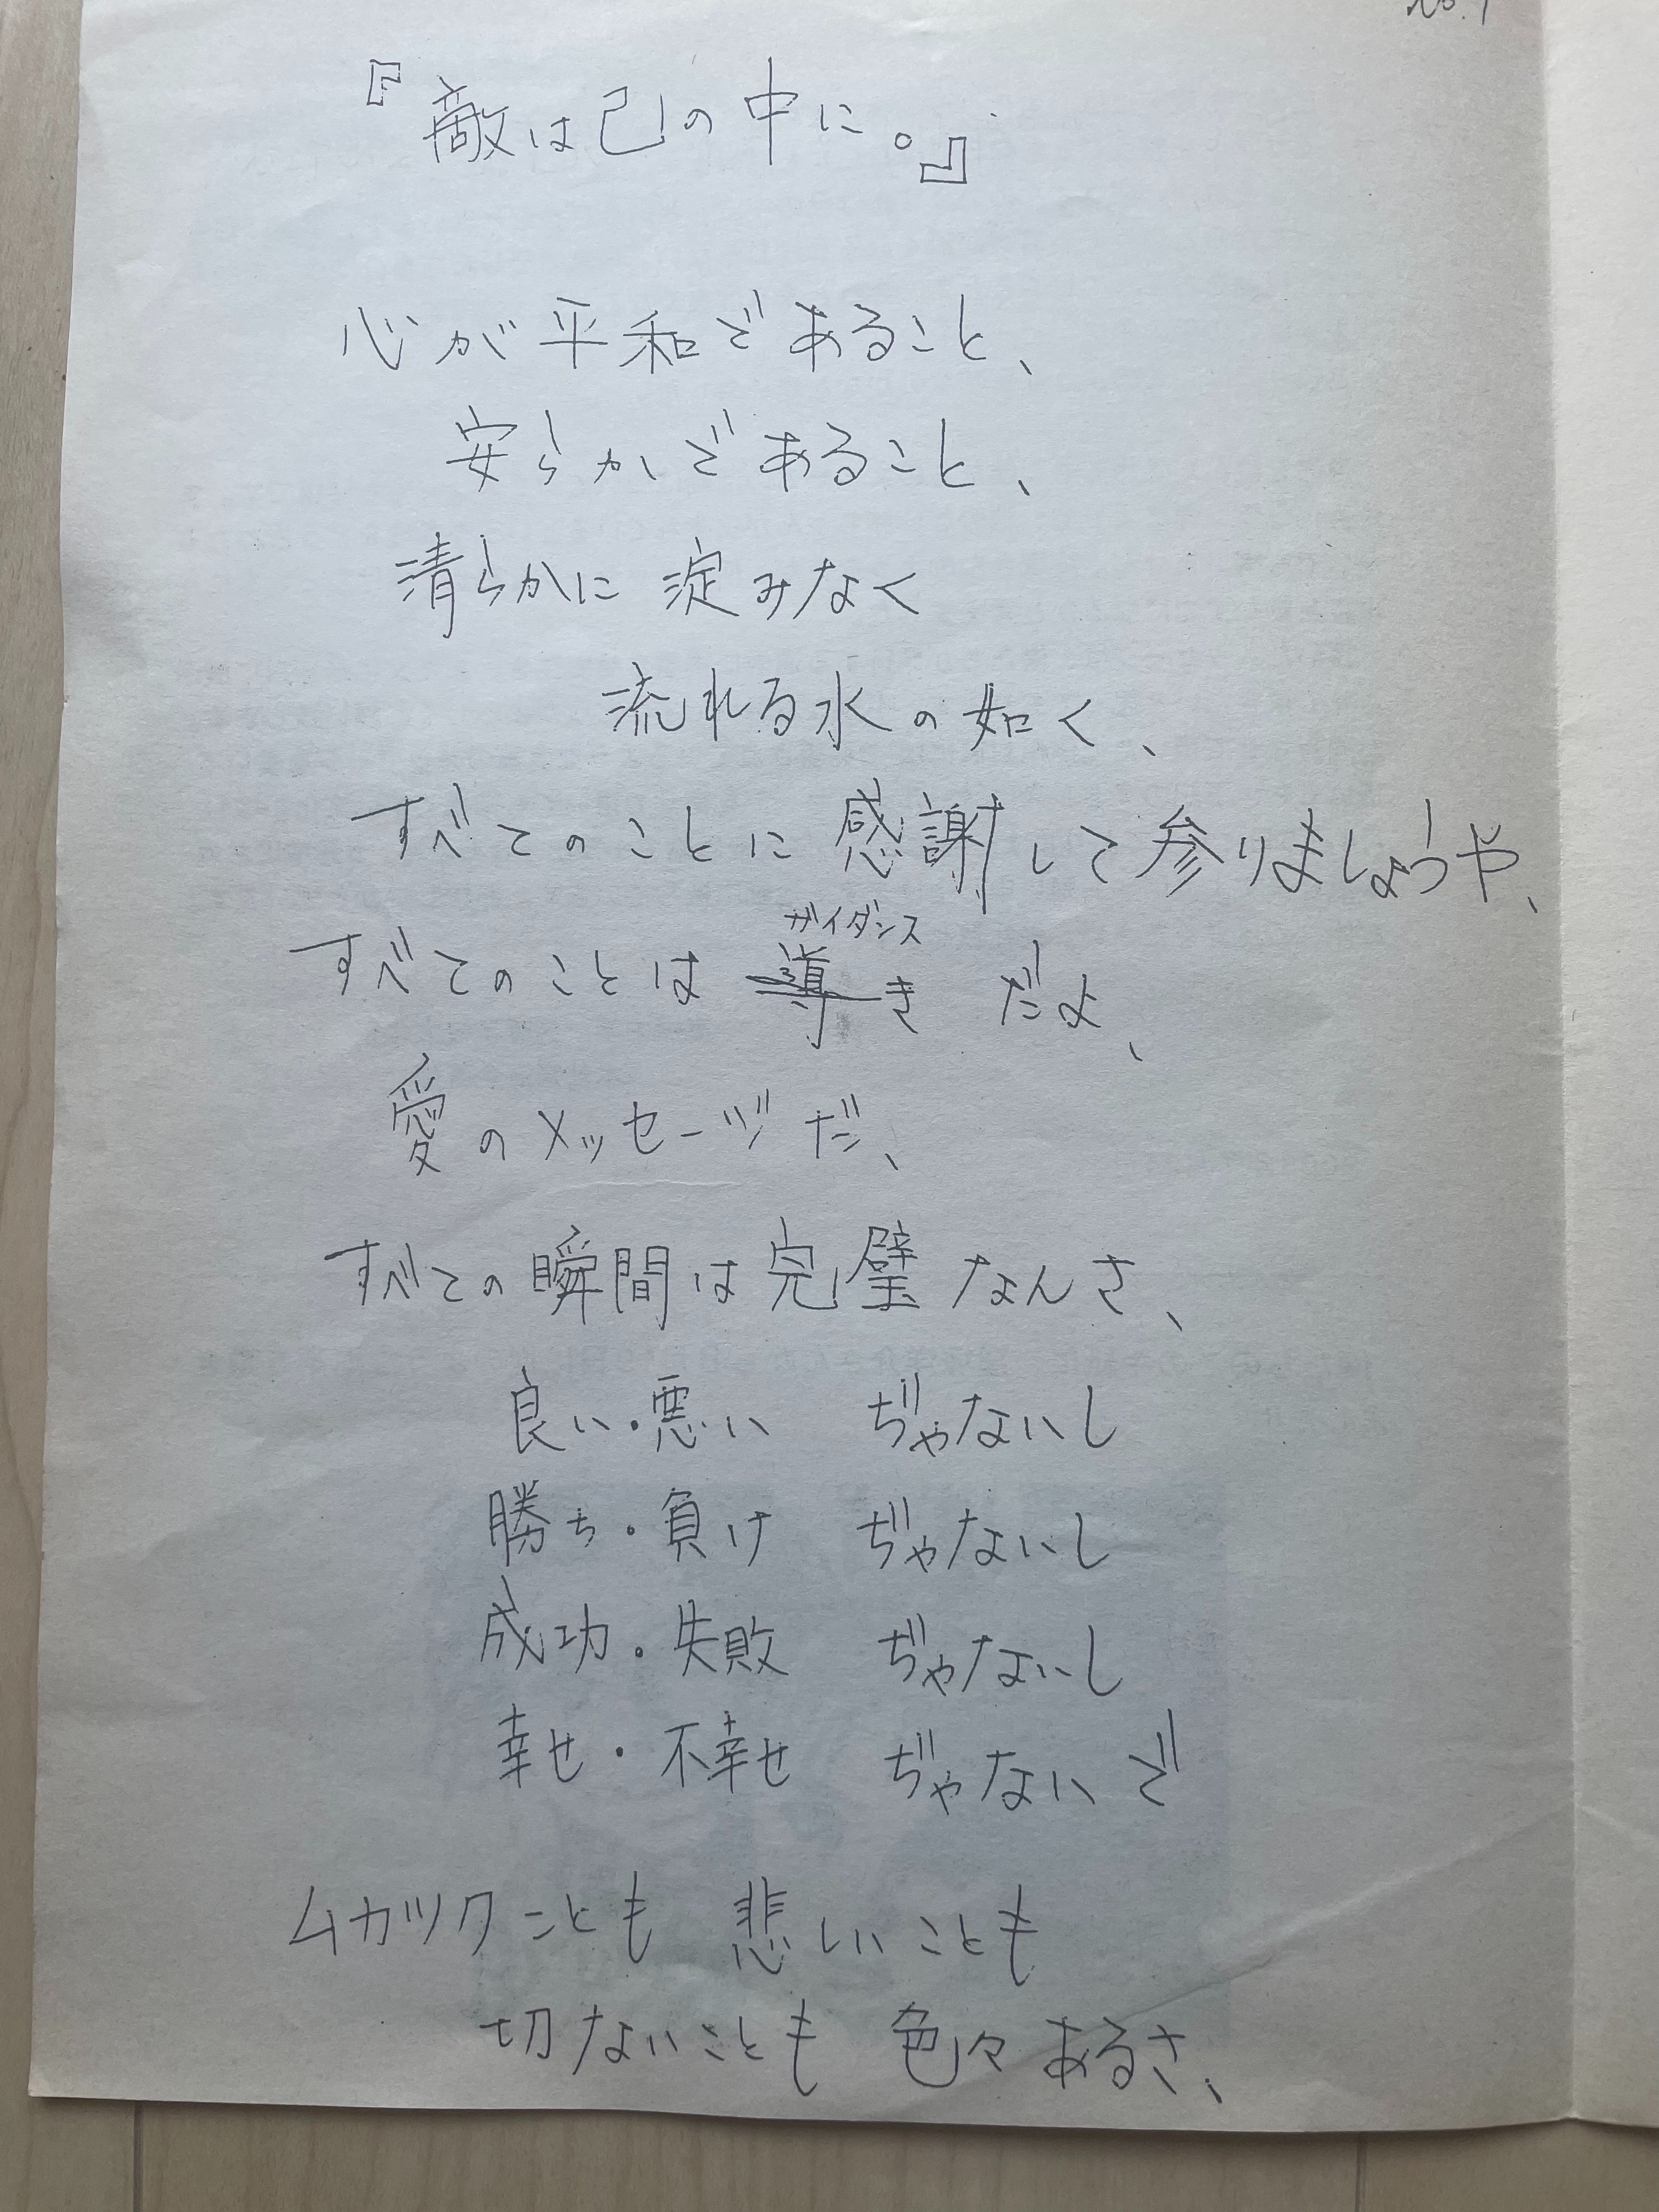 No.1
『敵は己の中に。』
心が平和であること、
安らかであること、
清らかに淀みなく
流れる水の如く、
すべてのことに感謝して参りましょうや、
ガイダンス
すべてのことは導きだよ、
愛のメッセージだ、
すべての瞬間は完璧なんさ、
良い・悪い ぢゃないし
勝ち・負け ぢゃないし
成功・失敗 ぢゃないし
幸せ・不幸せ ぢゃないで
ムカツクことも 悲しいことも
切ないことも 色々あるさ、